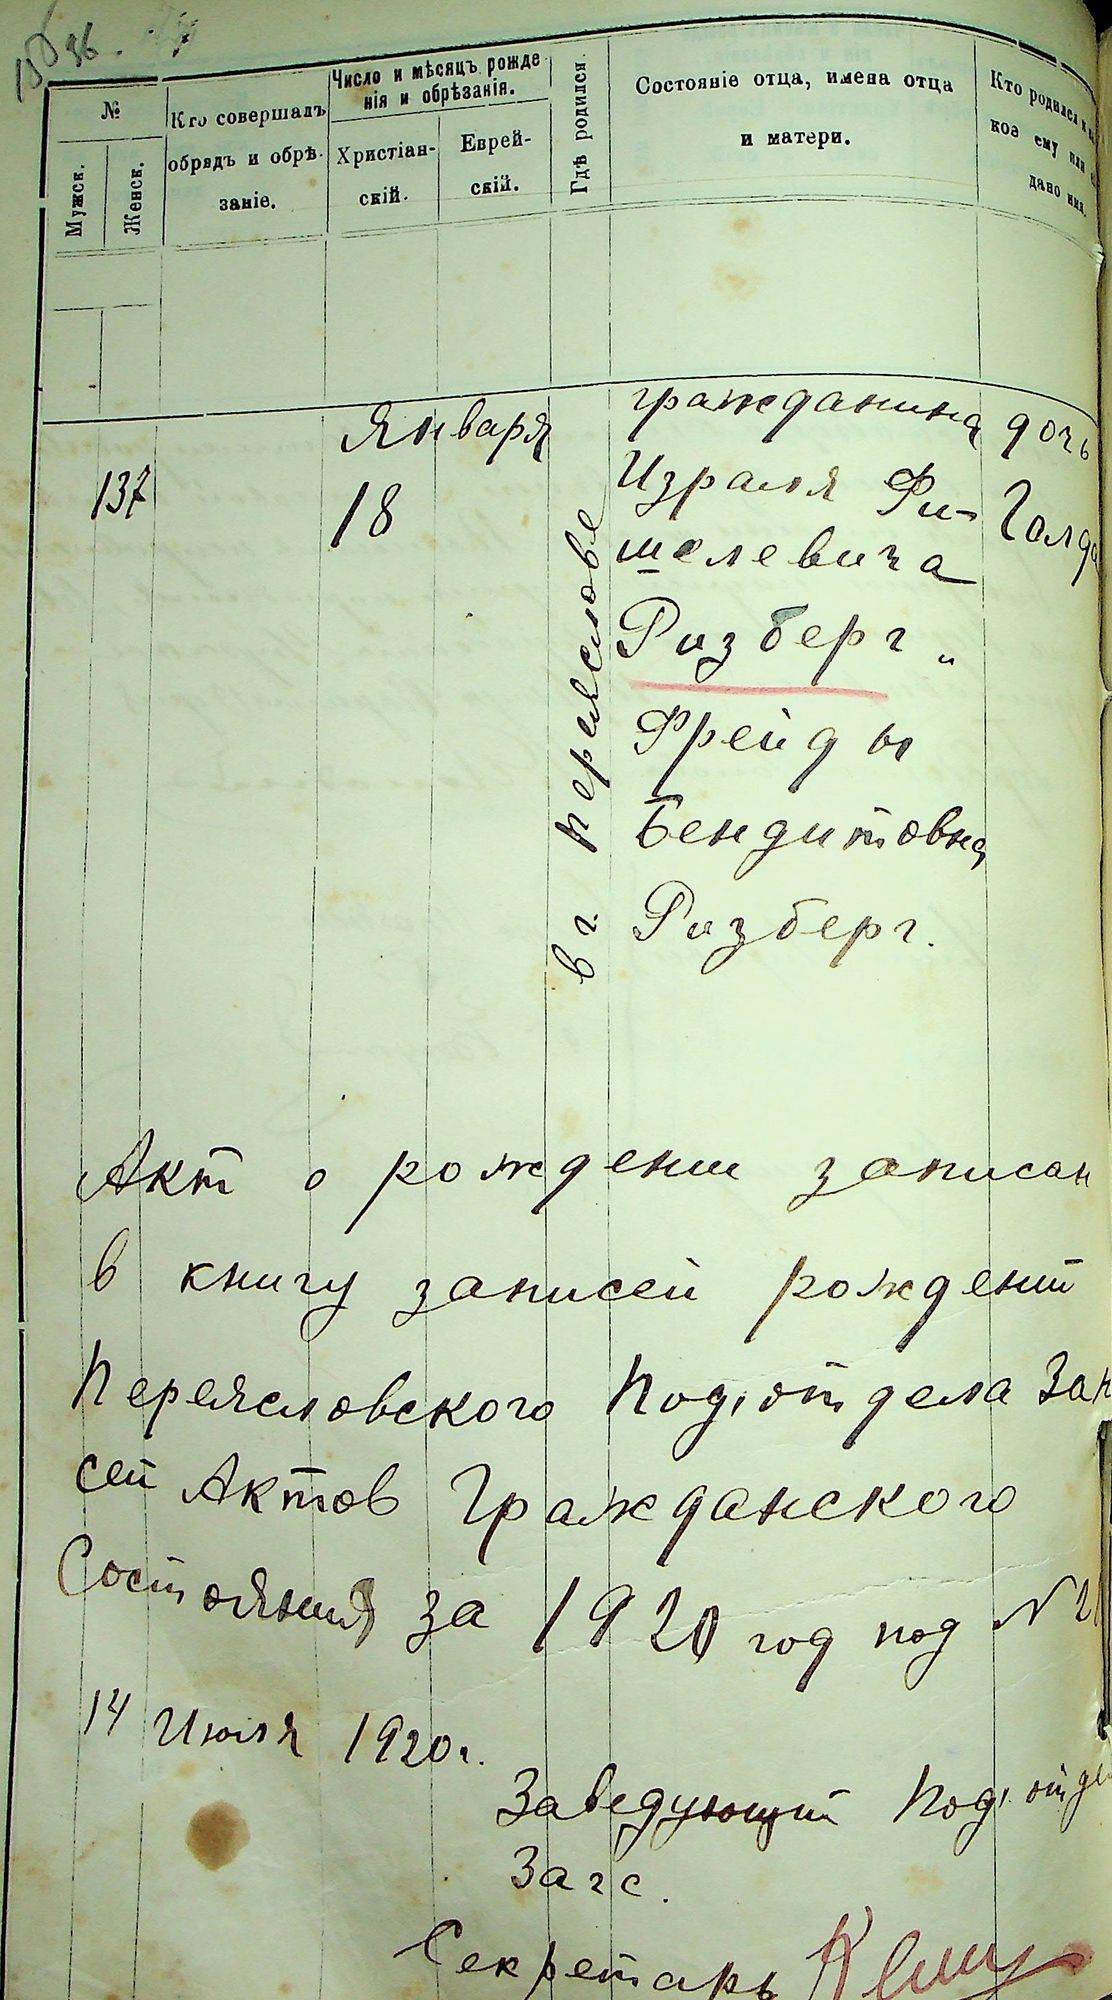 36.
№
Мужск.
Женск.
Кто совершалъ
обрядъ и обрѣ-
заніе.
Число и мѣсяцъ рожде
нія и обрѣзанія.
Христіан-
скій.
Еврей-
скій.
Гдѣ родился.
Состояніе отца, имена отца
и матери.
Кто родился и
кое ему или
дано имя.
137
Января
18
в г. Переяслове
гражданина
Израиля Фи-
шелевича
Ризберг и
Фрейды
Бендитовна
Ризберг.
дочь
Голда
Акт о рождении записан
в книгу записей рождений
Переясловского Под,отдела Зап
сей Актов Гражданского
Состояния за 1920 год под №
14 Июля 1920 г.
Заведующий Под,отде
Загс.
Секретарь